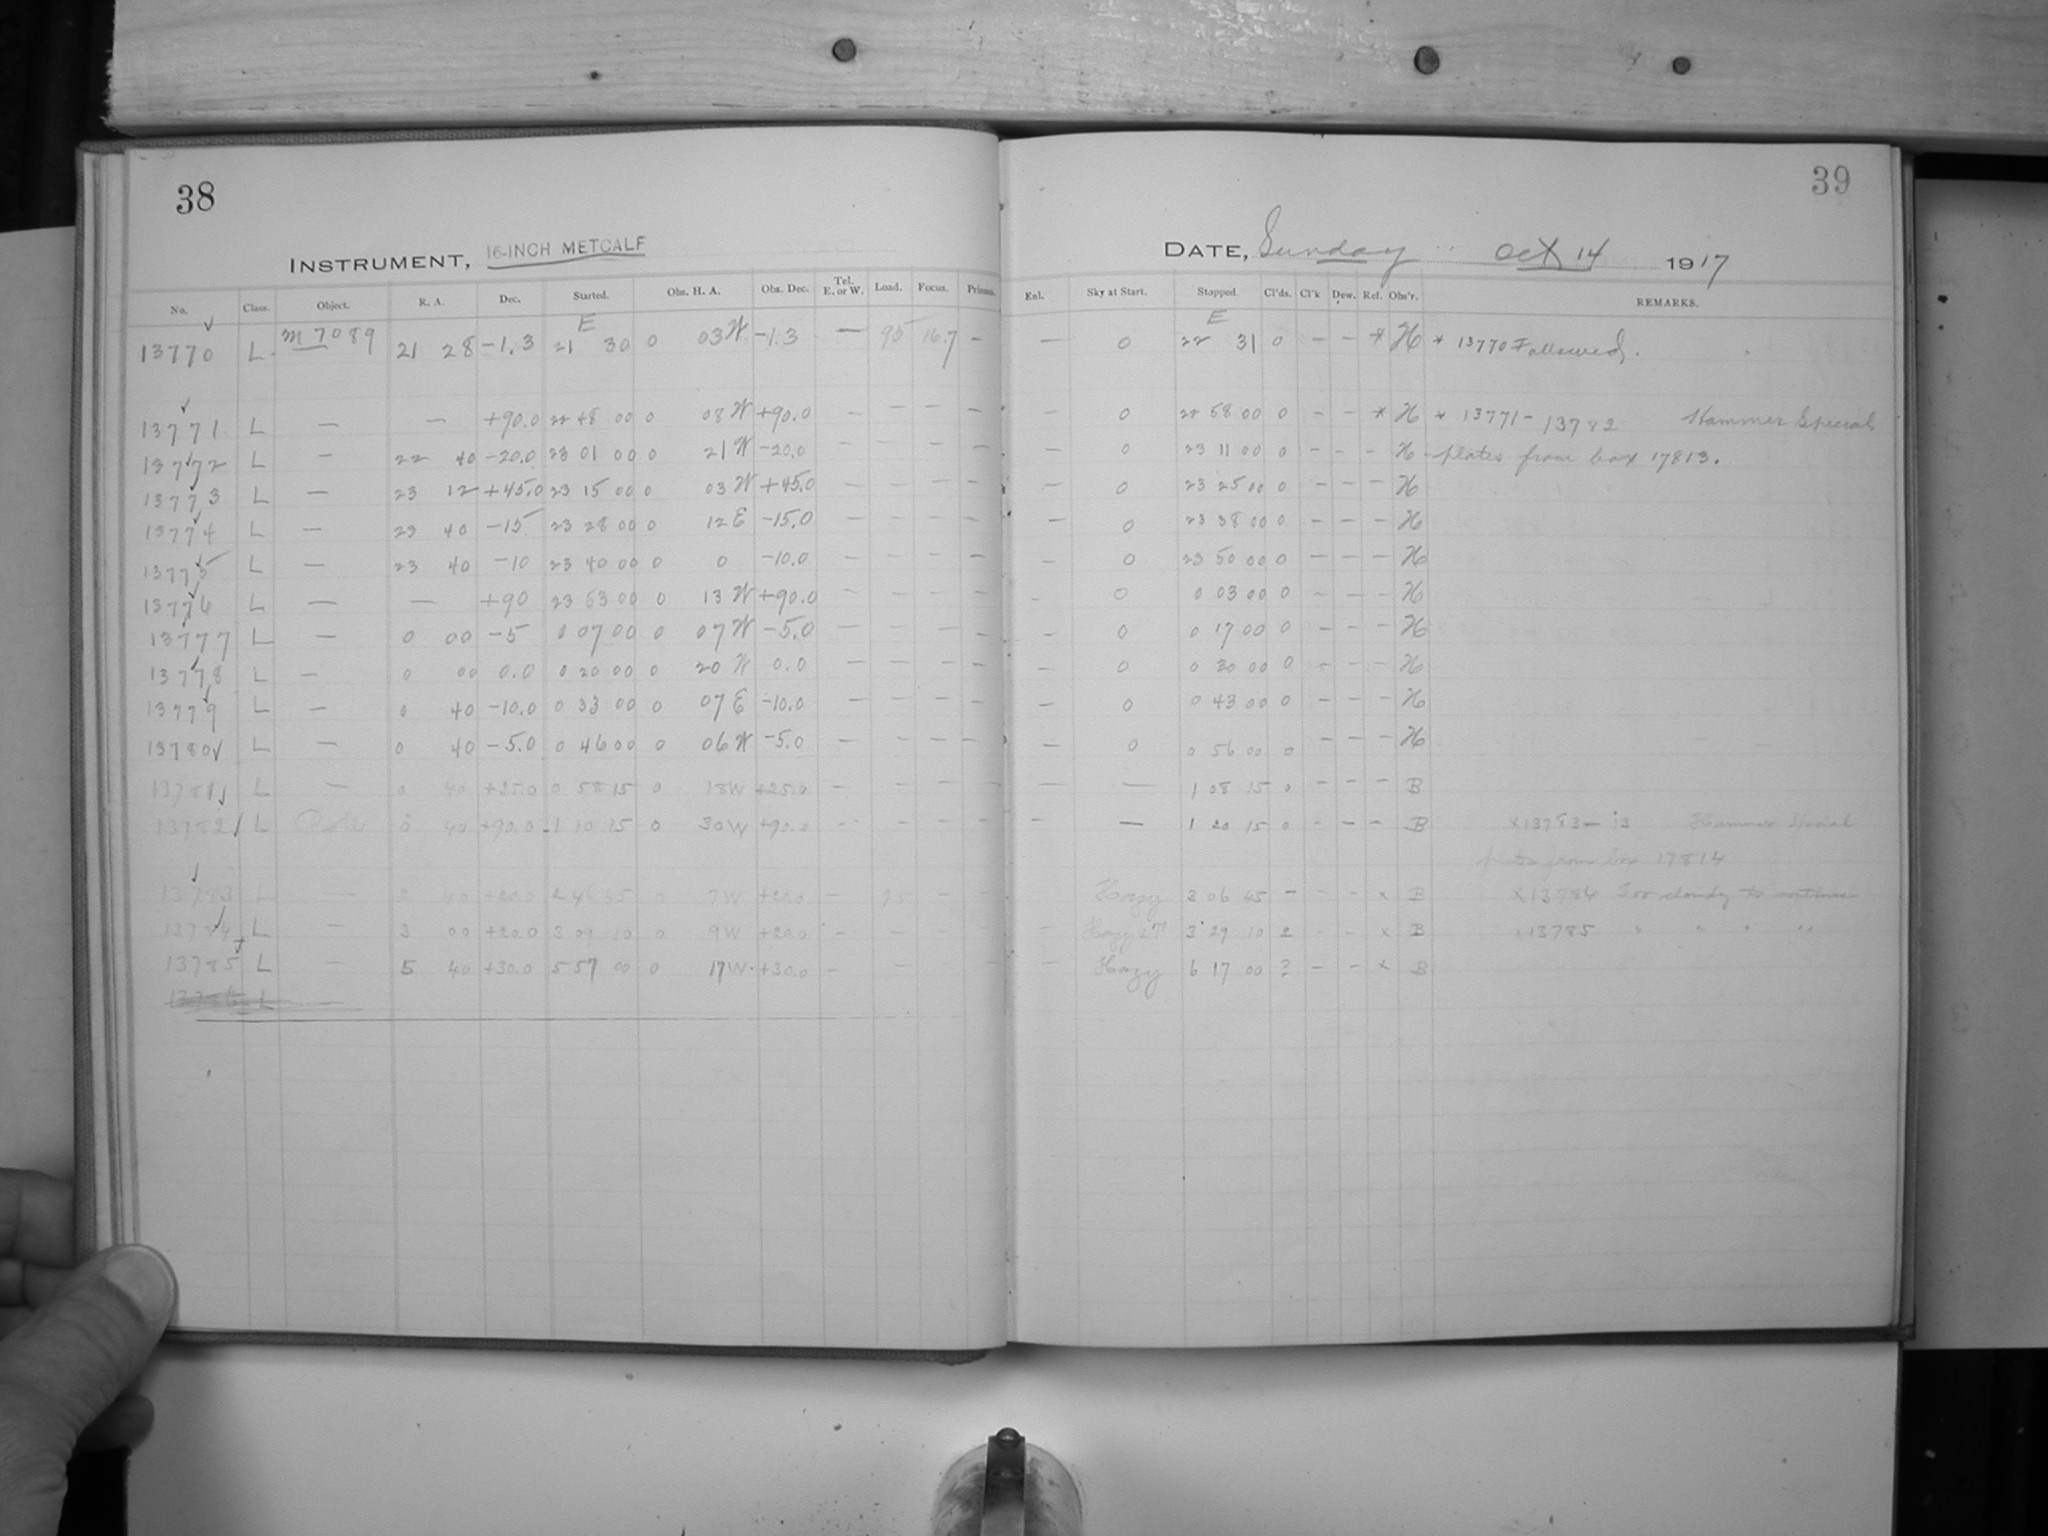 38
39
INSTRUMENT, 16-INCH METCALF
DATE, Sunday Oct 14 1917
No. Class. Object. R. A. Dec. Started. Obs. H. A. Obs. Dec. Tel. E. or W. Load. Focus. Prisms. Enl. Sky at Start. Stopped. Cl'ds. Cl'k Dew. Ref. Obs'r. REMARKS.
E E
13770 L m 7089 21 28 -1.3 21 30 0 03 W -1.3 — 95 16.7 — — 0 22 31 0 - - * H * 13770 Followed.
13771 L — — +90.0 22 48 00 0 08 W +90.0 — — — — — 0 22 58 00 0 - - * H * 13771-13782 Hammer Special
13772 L — 22 40 -20.0 23 01 00 0 21 W -20.0 — — — — — 0 23 11 00 0 - - - H -plates from box 17813.
13773 L — 23 12 +45.0 23 15 00 0 03 W +45.0 — — — — — 0 23 25 00 0 - - - H
13774 L — 23 40 -15 23 28 00 0 12 E -15.0 — — — — — 0 23 38 00 0 - - - H
13775 L — 23 40 -10 23 40 00 0 0 -10.0 — — — — — 0 23 50 00 0 - - - H
13776 L — — +90 23 53 00 0 13 W +90.0 — — — — — 0 0 03 00 0 - - - H
13777 L — 0 00 -5 0 07 00 0 07 W -5.0 — — — — — 0 0 17 00 0 - - - H
13778 L — 0 00 0.0 0 20 00 0 20 W 0.0 — — — — — 0 0 30 00 0 - - - H
13779 L — 0 40 -10.0 0 33 00 0 07 E -10.0 — — — — — 0 0 43 00 0 - - - H
13780 L — 0 40 -5.0 0 46 00 0 06 W -5.0 — — — — — 0 0 56 00 0 - - - H
13781 L — 0 40 +25.0 0 58 15 0 18 W +25.0 — — — — — — 1 08 15 0 - - - B
13782 L Pole 0 40 +90.0 1 10 15 0 30 W +90.0 — — — — — — 1 20 15 0 - - - B x13783- is Hammer Special
plates from box 17814
13783 L — 2 40 +20.0 2 46 45 0 7 W +20.0 — 95 — — Hazy 3 06 45 - - - x B x13784 Too cloudy to
13784 L — 3 00 +20.0 3 09 10 0 9 W +20.0 — — — — — Hazy 3 29 10 2 - - x B x13785 " " " "
13785 L — 5 40 +30.0 5 57 00 0 17 W +30.0 — — — — — Hazy 6 17 00 ? - - x B
13786 L —